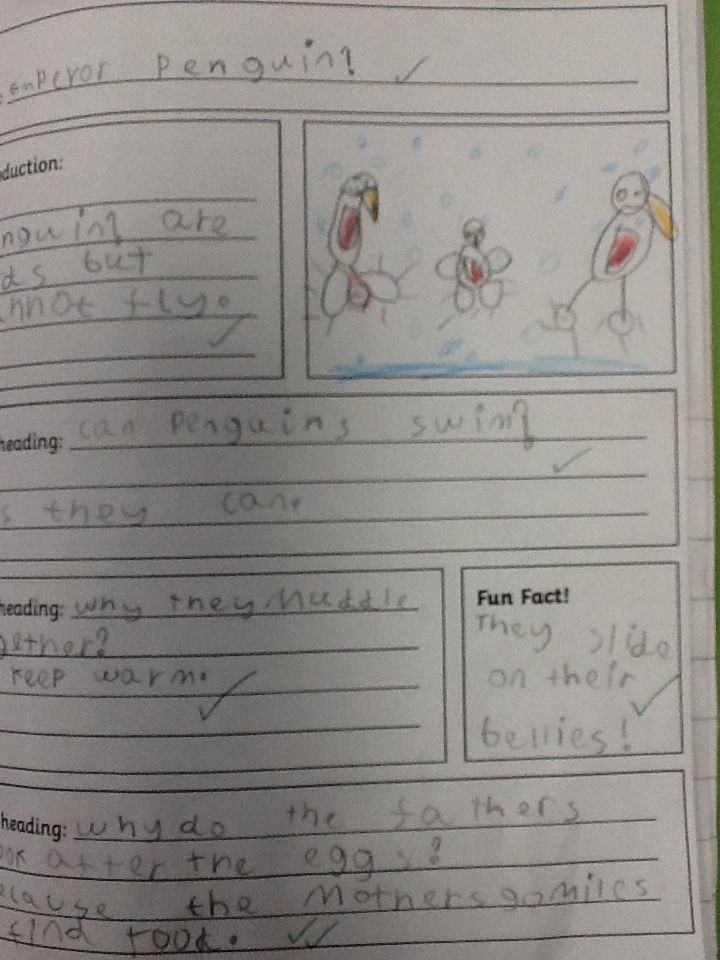 emperor Penguin?
duction:
nguin? are
ds but
nnot fly.
heading: can Penguins swim?
s they can.
heading: why they huddle
gether?
keep warm.
Fun Fact!
They slide
on their
bellies!
heading: why do the fathers
ook after the eggs?
ecause the Mothers go miles
find food.